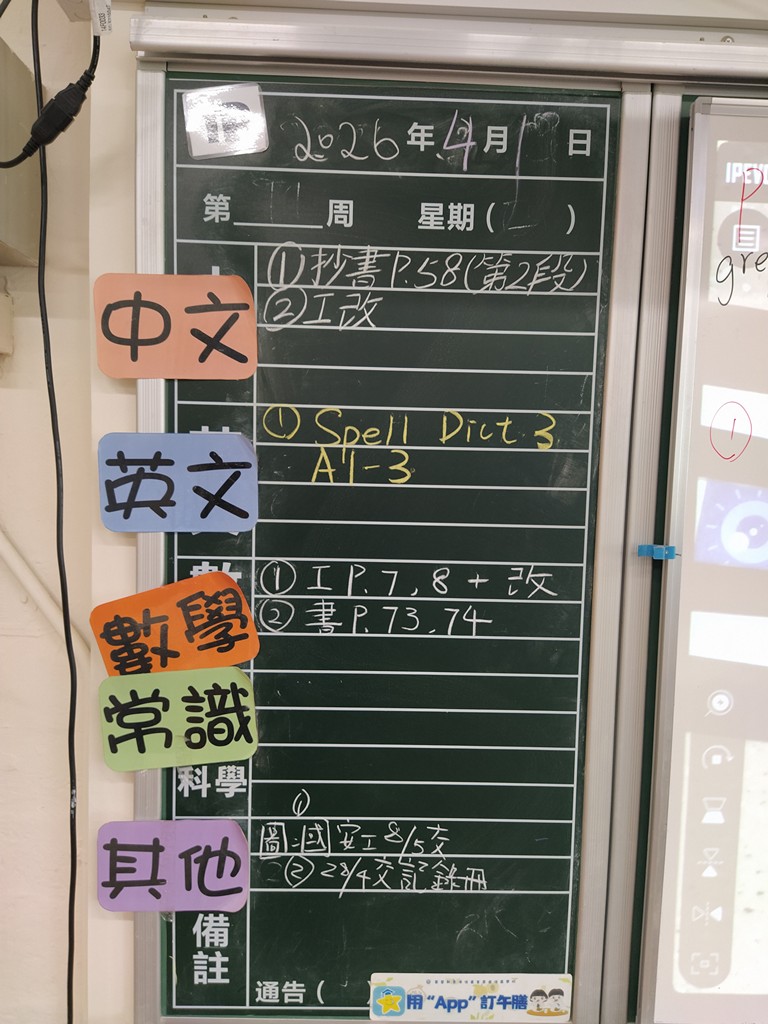 2026年4月1日
第 周 星期( )
中文
①抄書P.58(第2段)
②工改
英文
① Spell Dict 3
A1-3
數學
①工P.7,8+改
②書P.73,74
常識
科學
其他
①
圖:國安工8/5交
②28/4交記錄冊
備註
通告(
用“App”訂午膳
IPEVO
gre
①